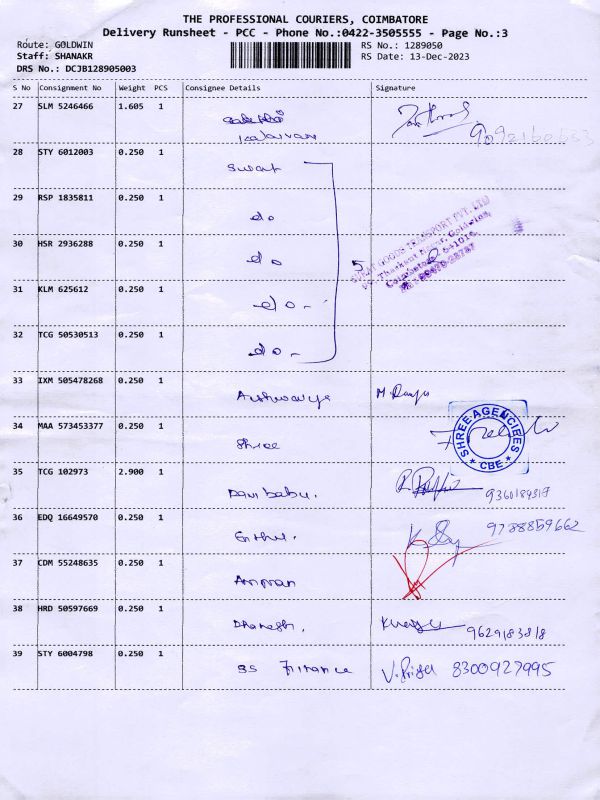 THE PROFESSIONAL COURIERS, COIMBATORE
Delivery Runsheet - PCC - Phone No.:0422-3505555 - Page No.:3
Route: GOLDWIN
RS No.: 1289050
Staff: SHANAKR
RS Date: 13-Dec-2023
DRS No.: DCJB128905003
S No Consignment No Weight PCS Consignee Details Signature
27 SLM 5246466 1.605 1
Kalaivani
28 STY 6012003 0.250 1
Swrat
29 RSP 1835811 0.250 1
do
30 HSR 2936288 0.250 1
do
5
31 KLM 625612 0.250 1
do -
32 TCG 50530513 0.250 1
do -
33 IXM 505478268 0.250 1
Aishwarya
34 MAA 573453377 0.250 1
Shree
SHREE AGENCIEES
* CBE *
35 TCG 102973 2.900 1
Danibabu.
36 EDQ 16649570 0.250 1
9788859662
37 CDM 55248635 0.250 1
38 HRD 50597669 0.250 1
Dhanesh.
9629183818
39 STY 6004798 0.250 1
SS Finance V. Priya 8300927995